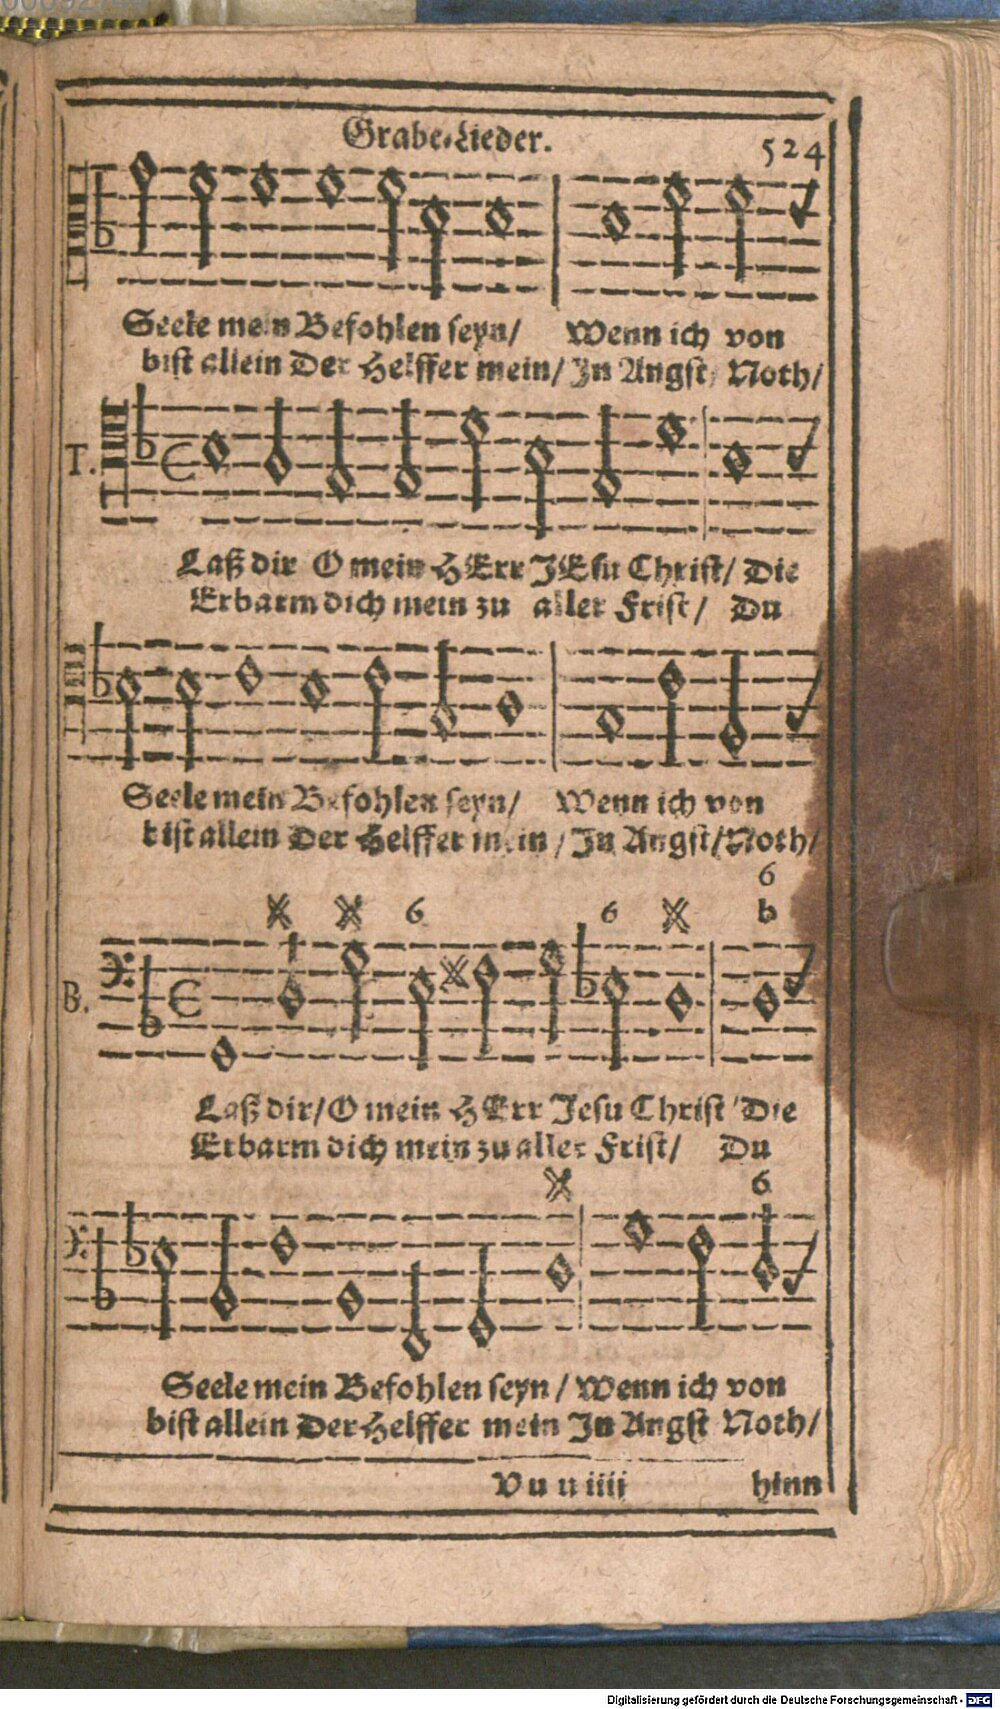 Grabe-Lieder.
524
Seele mein Befohlen seyn/ Wenn ich von
bist allein Der Helffer mein/ In Angst/ Noth/
T.
Laß dir O mein HErr JEsu Christ/ Die
Erbarm dich mein zu aller Frist/ Du
Seele mein Befohlen seyn/ Wenn ich von
bist allein Der Helffer mein/ In Angst/Noth/
6
6 6 b
B.
Laß dir/O mein HErr Jesu Christ/Die
Erbarm dich mein zu aller Frist/ Du
6
Seele mein Befohlen seyn/ Wenn ich von
bist allein Der Helffer mein In Angst Noth/
Vu u iiii hinn
Digitalisierung gefördert durch die Deutsche Forschungsgemeinschaft - DFG